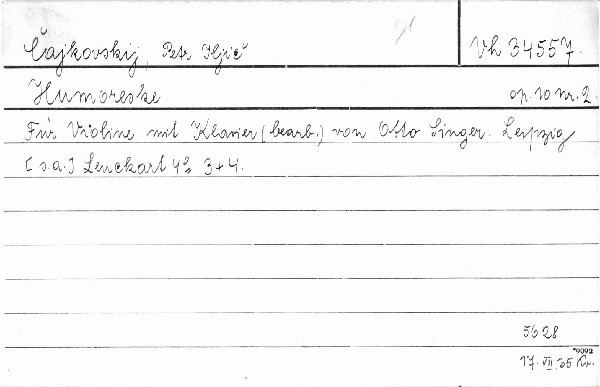 Čajkovskij, Petr Iljič Vh 34557.
Humoreske op. 10 nr. 2.
Für Violine mit Klavier (bearb.) von Otto Singer. Leipzig
[s.a.] Leuckart 4° 3+4.
5628
*9092
17. VII. 65